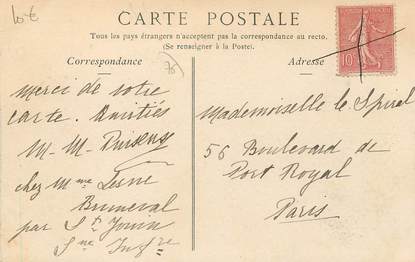 10 €
CARTE POSTALE
Tous les pays étrangers n'acceptent pas la correspondance au recto.
(Se renseigner à la Poste).
Correspondance
76
Adresse
10
Merci de votre
carte. Amitiés
M. M.
chez Mme Lesne
Bruneval
par St Jouin
Sne Infre
Mademoiselle le Spiral
56 Boulevard de
Port Royal
Paris